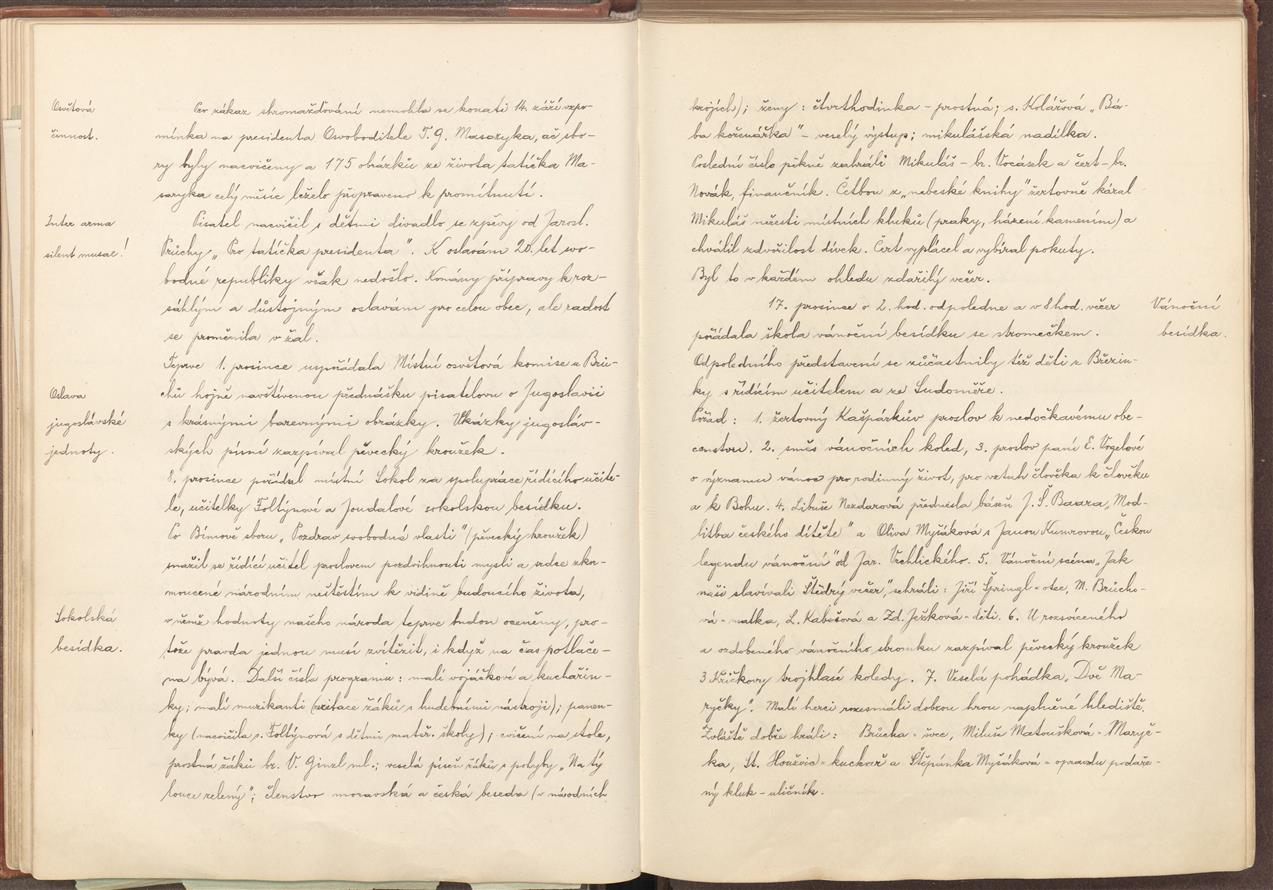 Osvětová
činnost.
Po zákaz shromažďování nemohla se konati 14. září vzpo-
mínka na presidenta Osvoboditele T. G. Masaryka, ač sbo-
ry byly nacvičeny a 175 obrázků ze života tatíčka Ma-
saryka celý měsíc leželo připraveno k promítnutí.
Inter arma
silent musae!
Pisatel nacvičil s dětmi divadlo se zpěvy od Jarosl.
Průchy „Pro tatíčka presidenta". K oslavám 20 let svo-
bodné republiky však nedošlo. Konány přípravy k roz-
sáhlým a důstojným oslavám pro celou obec, ale radost
se proměnila v žal.
Teprve 1. prosince uspořádala Místní osvětová komise v Bří-
Oslava
jugoslávské
jednoty.
chů hojně navštívenou přednášku pisatelovu o Jugoslavii
s krásnými barevnými obrázky. Ukázky jugosláv-
ských písní zazpíval pěvecký kroužek.
8. prosince pořádal místní Sokol za spolupráce řídícího učite-
le, učitelky Foltýnové a Joudalové sokolskou besídku.
Po Bímově sboru „Pozdrav svobodná vlasti" (pěvecký kroužek)
snažil se řídící učitel proslovem pozdvihnouti mysli a srdce zka-
moucené národním neštěstím k vidině budoucího života,
Sokolská
besídka.
v němž hodnoty našeho národa teprve budou oceněny, pro-
tože pravda jednou musí zvítězit, i když na čas potlače-
na bývá. Další čísla programu: malí vojáčkové a kuchařin-
ky; malí muzikanti (recitace žáků s hudebními nástroji); panen-
ky (nacvičila s. Foltýnová s dětmi mateř. školy); cvičení na stole,
prostná žáků br. V. Ginzl ml.; veselá píseň žáků s pohyby „Na tý
louce zelený"; členstvo moravská a česká beseda (v národních
krojích); ženy: čtvrthodinka - prostná; s. Kolářová „Bá-
ba kořenářka" - veselý výstup; mikulášská nadílka.
Poslední číslo pěkně zahráli Mikuláš - br. Vocásek a čert - br.
Novák, finančník. Četbou z „nebeské knihy" žertovně káral
Mikuláš neřesti místních kluků (praky, házení kamením) a
chválil zdvořilost dívek. Čert vyplácel a vybíral pokuty.
Byl to v každém ohledu zdařilý večer.
17. prosince o 2. hod. odpoledne a v 8 hod. večer
Vánoční
besídka.
pořádala škola vánoční besídku se stromečkem.
Odpoledního představení se zúčastnily též děti z Březin-
ky s řídícím učitelem a ze Sudoměře.
Pořad: 1. žertovný Kašpárkův proslov k nedočkavému obe-
censtvu. 2. směs vánočních koled, 3. proslov paní E. Vogelové
o významu vánoc pro rodinný život, pro vztah člověka k člověku
a k Bohu. 4. Libuše Nezdarová přednesla báseň J. Š. Baara, „Mod-
litba českého dítěte" a Oliva Myšáková s Janou Kunrovou „Českou
legendu vánoční" od Jar. Vrchlického. 5. Vánoční scéna „Jak
naši slavívali Štědrý večer" sehráli: Jiří Špringl - otec, M. Brücho-
vá - matka, L. Kabešová a Zd. Ježková - děti. 6. U rozsvíceného
a ozdobeného vánočního stromku zazpíval pěvecký kroužek
3 Křičkovy trojhlasé koledy. 7. Veselá pohádka „Dvě Ma-
ryčky". Malí herci rozesmáli dobrou hrou naplněné hlediště.
Zvláště dobře hráli: Brücha - švec, Miluše Matoušková - Maryč-
ka, St. Houžvic - kuchař a Štěpánka Myšáková - opravdu podaře-
ný kluk - uličník.